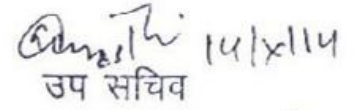 14/x/14
उप सचिव